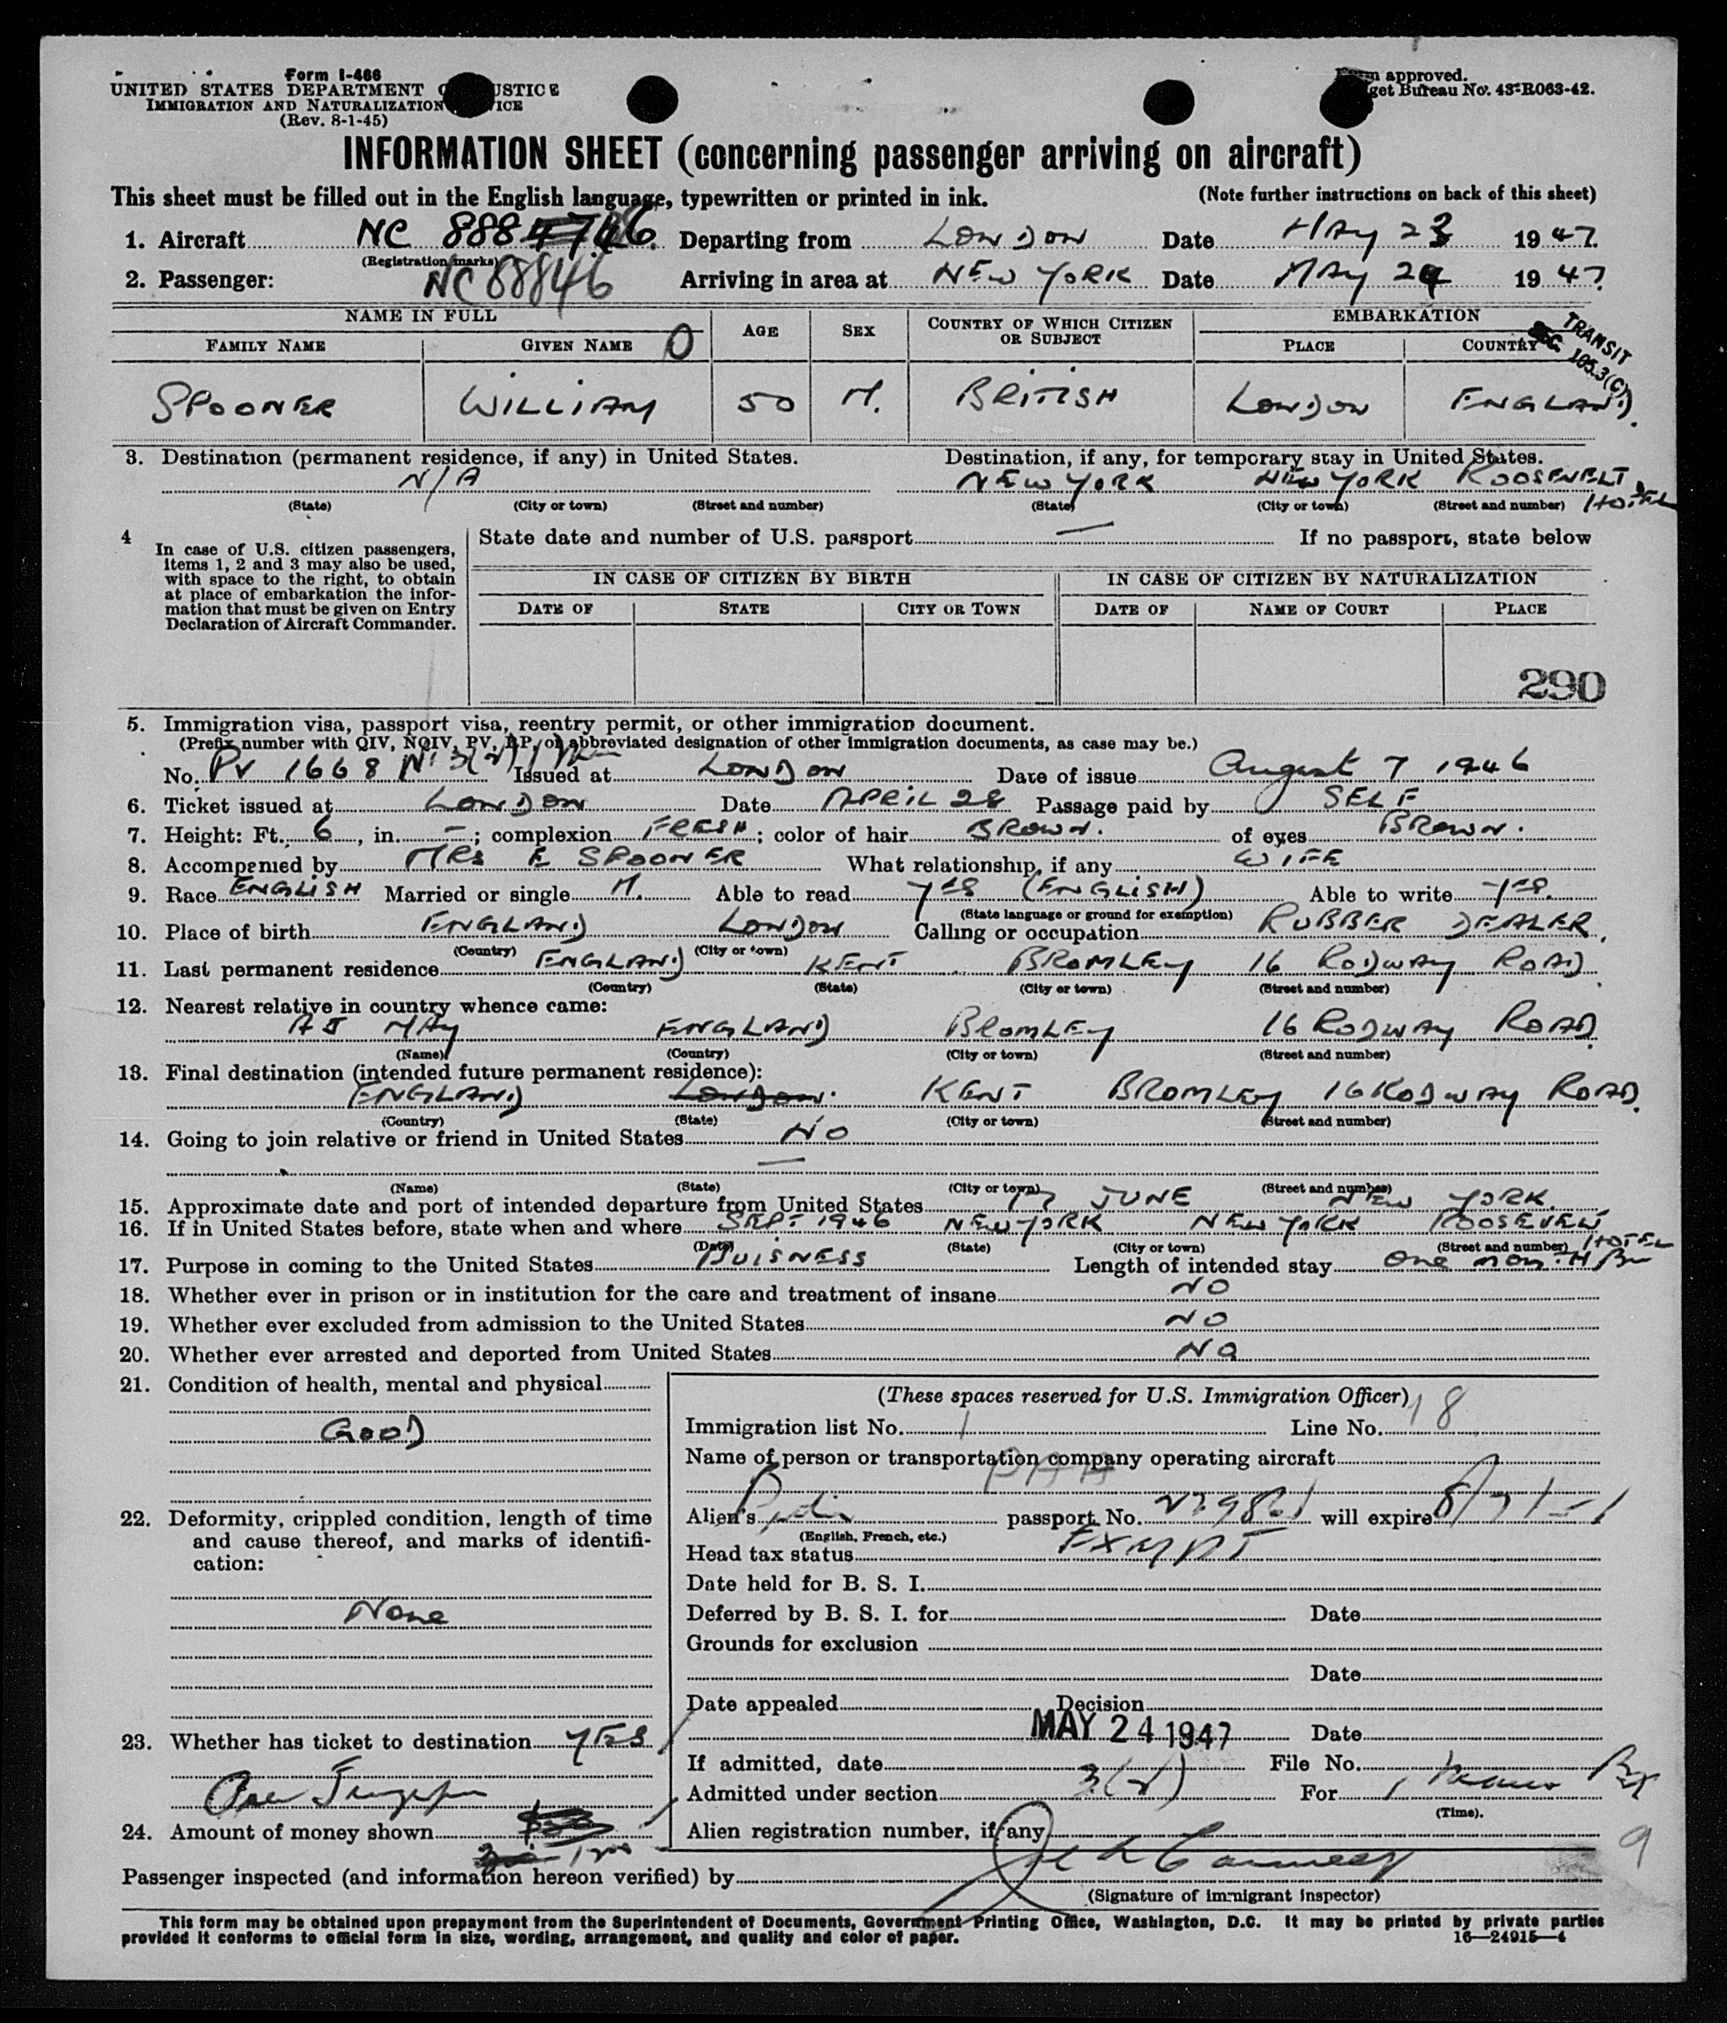 Form I-466
UNITED STATES DEPARTMENT
IMMIGRATION AND NATURALIZATION
(Rev. 8-1-45)
approved.
Bureau No. 43-R063-42.
INFORMATION SHEET (concerning passenger arriving on aircraft)
This sheet must be filled out in the English language, typewritten or printed in ink. (Note further instructions on back of this sheet)
1. Aircraft NC Departing from LONDON Date MAY 23 1947
(Registration marks)
2. Passenger: NC 88846 Arriving in area at NEW YORK Date MAY 24 1947
NAME IN FULL AGE SEX COUNTRY OF WHICH CITIZEN OR SUBJECT EMBARKATION
FAMILY NAME GIVEN NAME 0 PLACE COUNTRY
TRANSIT
SEC. 105.3(C)
SPOONER WILLIAM 50 M. BRITISH LONDON ENGLAND.
3. Destination (permanent residence, if any) in United States. Destination, if any, for temporary stay in United States.
N/A NEW YORK NEW YORK ROOSEVELT HOTEL
(State) (City or town) (Street and number) (State) (City or town) (Street and number)
4 In case of U.S. citizen passengers, items 1, 2 and 3 may also be used, with space to the right, to obtain at place of embarkation the information that must be given on Entry Declaration of Aircraft Commander.
State date and number of U.S. passport — If no passport, state below
IN CASE OF CITIZEN BY BIRTH IN CASE OF CITIZEN BY NATURALIZATION
DATE OF STATE CITY OR TOWN DATE OF NAME OF COURT PLACE
290
5. Immigration visa, passport visa, reentry permit, or other immigration document.
(Prefix number with QIV, NQIV, PV, RP, or abbreviated designation of other immigration documents, as case may be.)
No. PV 1668 Issued at LONDON Date of issue August 7 1946
6. Ticket issued at LONDON Date APRIL 28 Passage paid by SELF
7. Height: Ft. 6, in. –; complexion FRESH; color of hair BROWN. of eyes BROWN.
8. Accompanied by MRS E SPOONER What relationship, if any WIFE
9. Race ENGLISH Married or single M. Able to read YES (ENGLISH) Able to write YES.
(State language or ground for exemption)
10. Place of birth ENGLAND LONDON Calling or occupation RUBBER DEALER.
(Country) (City or town)
11. Last permanent residence ENGLAND KENT BROMLEY 16 RODWAY ROAD.
(Country) (State) (City or town) (Street and number)
12. Nearest relative in country whence came:
MAY ENGLAND BROMLEY 16 RODWAY ROAD.
(Name) (Country) (City or town) (Street and number)
13. Final destination (intended future permanent residence):
ENGLAND LONDON. KENT BROMLEY 16 RODWAY ROAD.
(Country) (State) (City or town) (Street and number)
14. Going to join relative or friend in United States NO
—
(Name) (State) (City or town) (Street and number)
15. Approximate date and port of intended departure from United States JUNE NEW YORK.
16. If in United States before, state when and where SEPT 1946 NEW YORK NEW YORK ROOSEVELT HOTEL
(Date) (State) (City or town) (Street and number)
17. Purpose in coming to the United States BUISNESS Length of intended stay ONE MONTH
18. Whether ever in prison or in institution for the care and treatment of insane NO
19. Whether ever excluded from admission to the United States NO
20. Whether ever arrested and deported from United States NO
21. Condition of health, mental and physical
GOOD
22. Deformity, crippled condition, length of time and cause thereof, and marks of identification:
None
23. Whether has ticket to destination YES
24. Amount of money shown
(These spaces reserved for U.S. Immigration Officer)
Immigration list No. 1 Line No. 18
Name of person or transportation company operating aircraft
PAA
Alien's passport No. will expire
(English, French, etc.)
Head tax status EXMPT
Date held for B. S. I.
Deferred by B. S. I. for Date
Grounds for exclusion
Date
Date appealed Decision
MAY 24 1947 Date
If admitted, date File No.
Admitted under section 3(2) For
(Time).
Alien registration number, if any
9
Passenger inspected (and information hereon verified) by
(Signature of immigrant inspector)
This form may be obtained upon prepayment from the Superintendent of Documents, Government Printing Office, Washington, D.C. It may be printed by private parties
provided it conforms to official form in size, wording, arrangement, and quality and color of paper. 16—24915—4